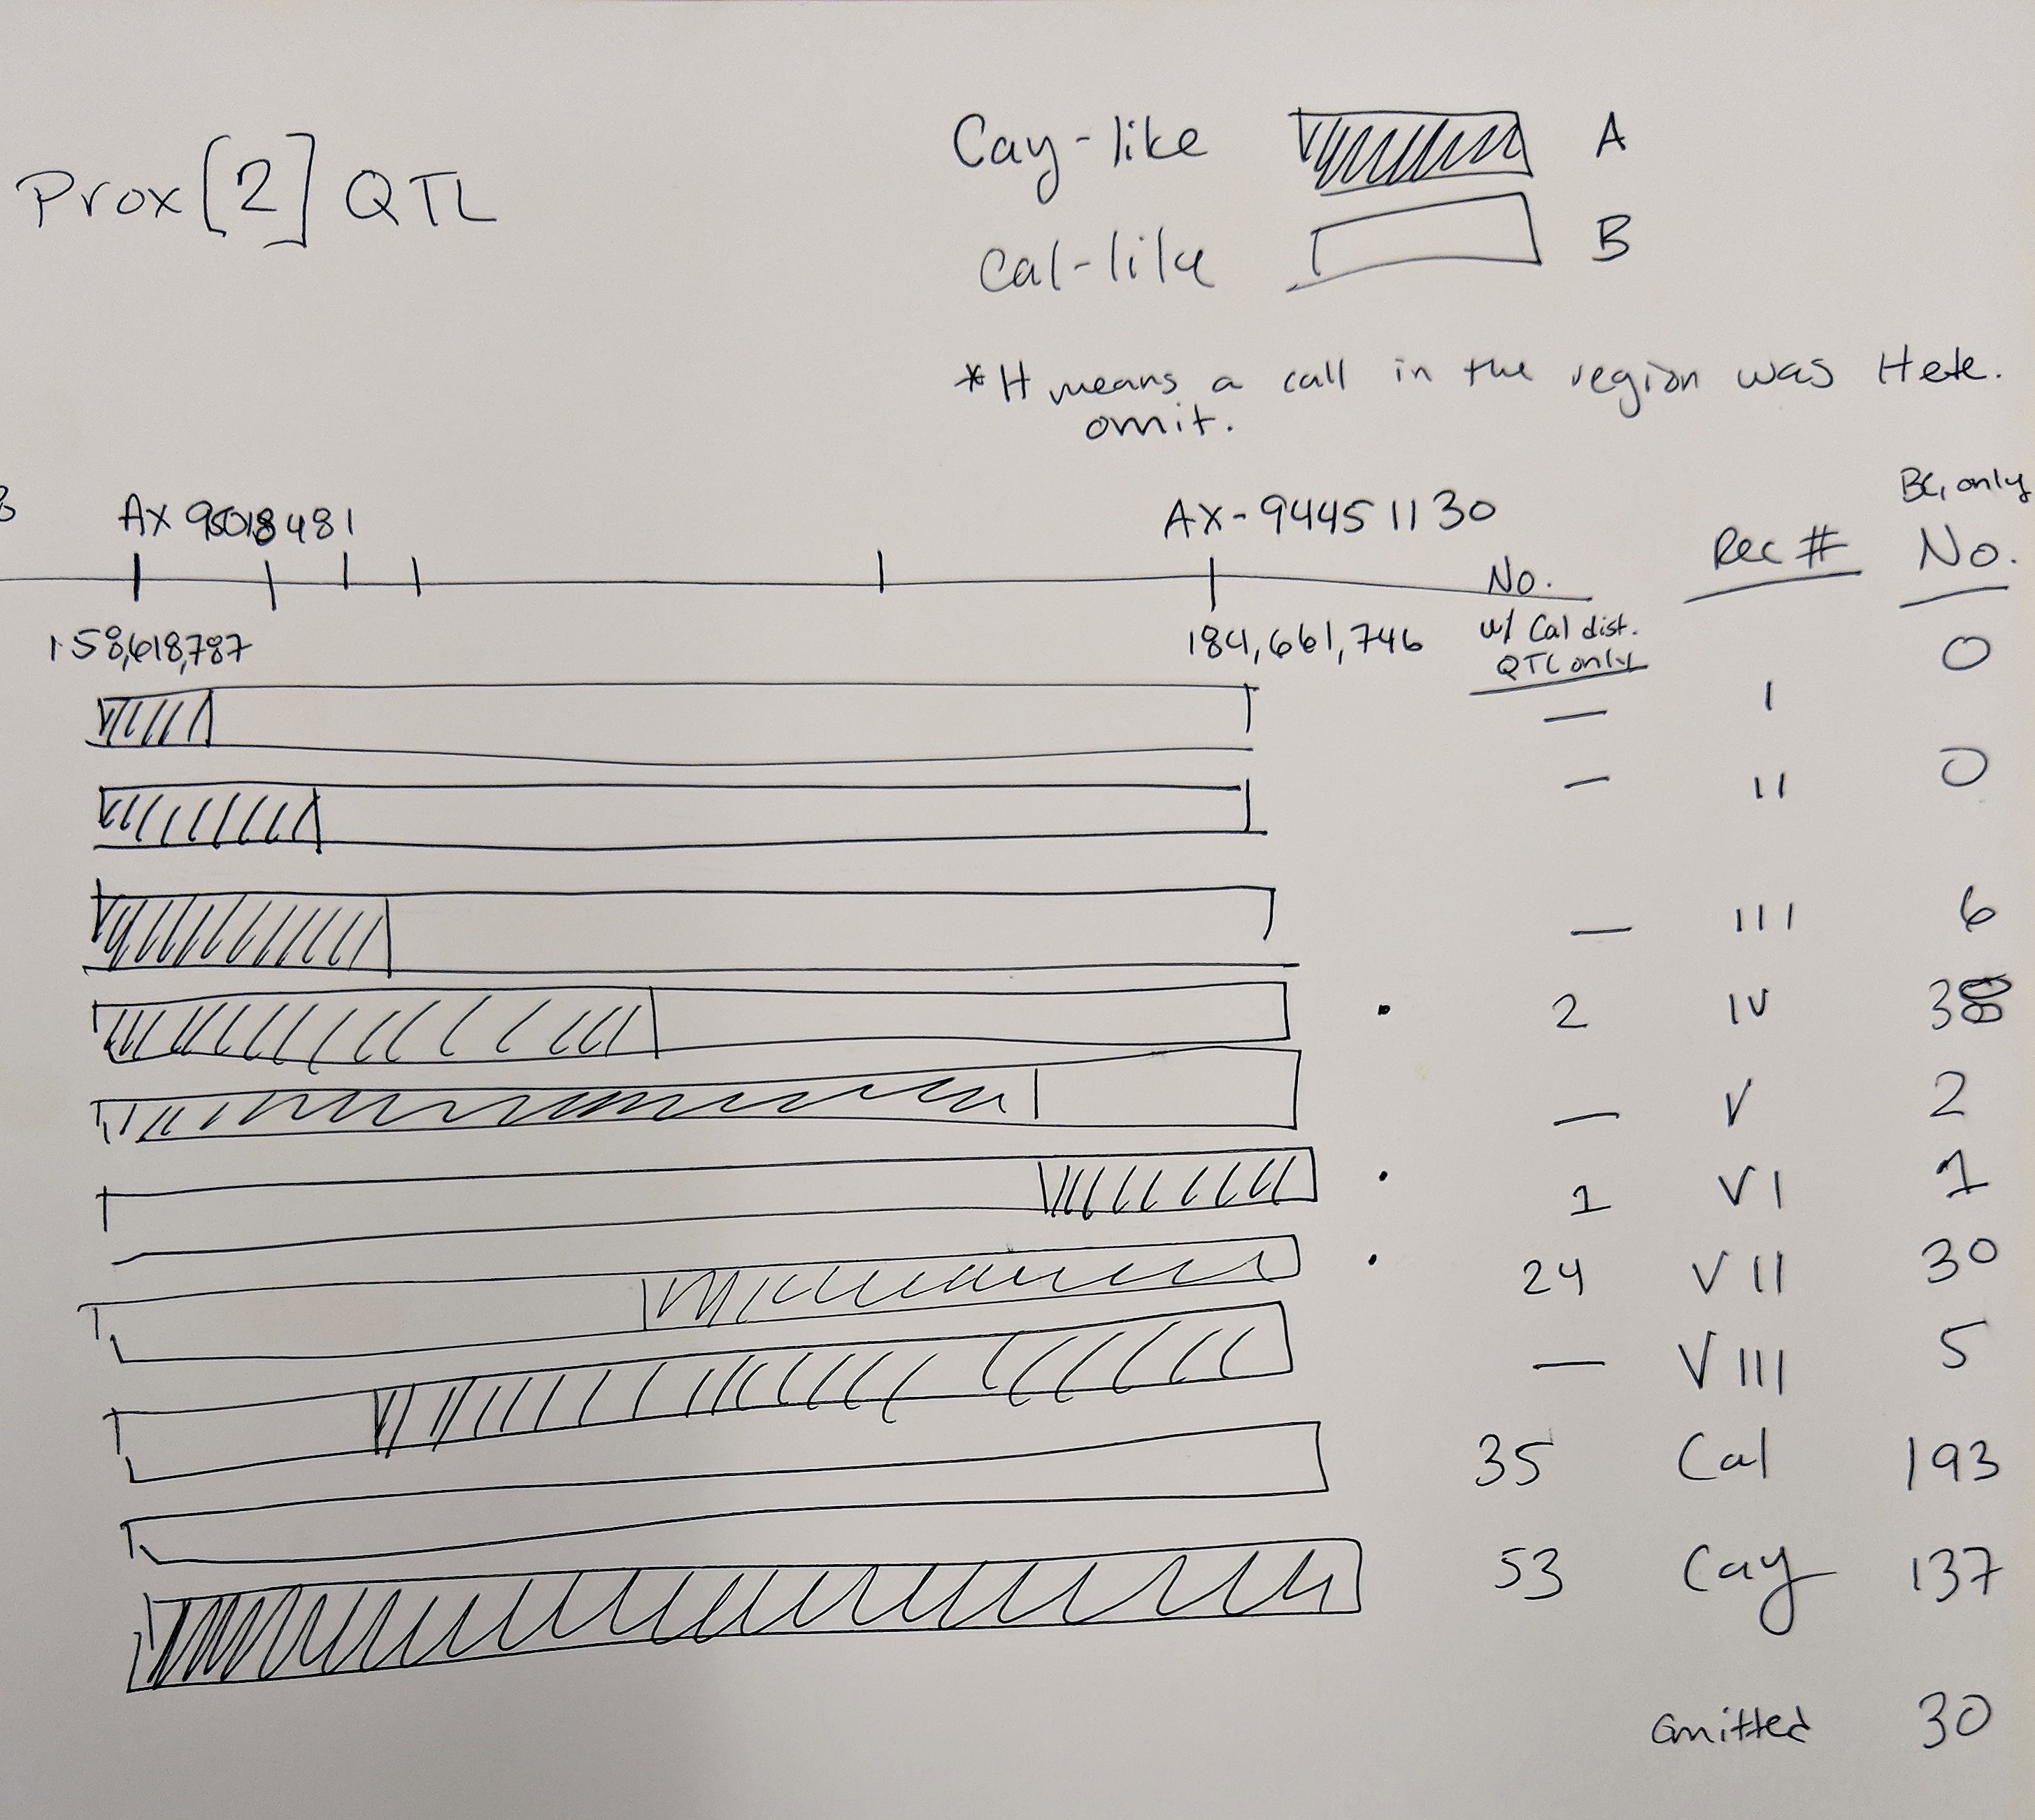 Cay-like A
Prox[2] QTL
Cal-like B
*H means a call in the region was Hete.
omit.
BC1 only
AX 95018481 AX-94451130 Rec # No.
No.
158,618,787 184,661,746 w/ Cal dist. 0
QTL only
— I
— II 0
— III 6
2 IV 38
— V 2
1 VI 1
24 VII 30
— VIII 5
35 Cal 193
53 Cay 137
omitted 30